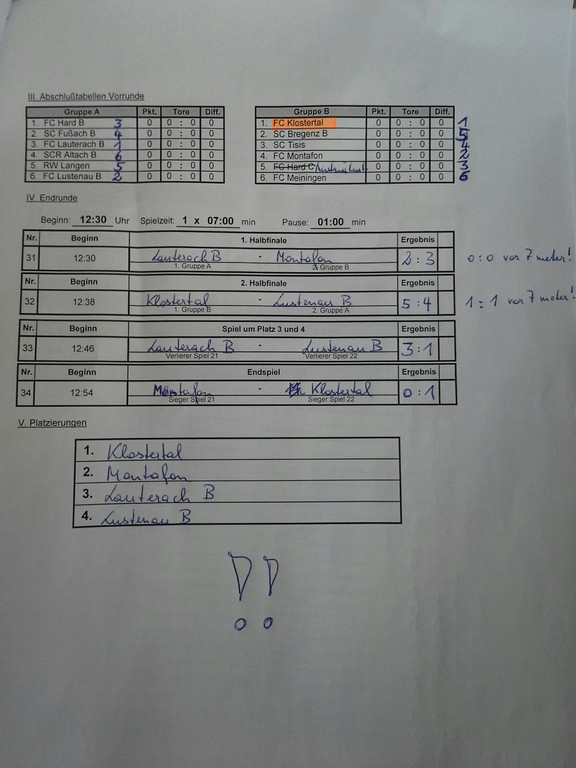 III. Abschlußtabellen Vorrunde
Gruppe A Pkt. Tore Diff.
1. FC Hard B 3 0 0 : 0 0
2. SC Fußach B 4 0 0 : 0 0
3. FC Lauterach B 1 0 0 : 0 0
4. SCR Altach B 6 0 0 : 0 0
5. RW Langen 5 0 0 : 0 0
6. FC Lustenau B 2 0 0 : 0 0
Gruppe B Pkt. Tore Diff.
1. FC Klostertal 0 0 : 0 0 1
2. SC Bregenz B 0 0 : 0 0 5
3. SC Tisis 0 0 : 0 0 4
4. FC Montafon 0 0 : 0 0 2
5. FC Hard C 0 0 : 0 0 3
6. FC Meiningen 0 0 : 0 0 6
IV. Endrunde
Beginn: 12:30 Uhr Spielzeit: 1 x 07:00 min Pause: 01:00 min
Nr. Beginn 1. Halbfinale Ergebnis
31 12:30 Lauterach B - Montafon 2 : 3 0:0 vor 7 meter!
1. Gruppe A 2. Gruppe B
Nr. Beginn 2. Halbfinale Ergebnis
32 12:38 Klostertal - Lustenau B 5 : 4 1:1 vor 7 meter!
1. Gruppe B 2. Gruppe A
Nr. Beginn Spiel um Platz 3 und 4 Ergebnis
33 12:46 Lauterach B - Lustenau B 3 : 1
Verlierer Spiel 21 Verlierer Spiel 22
Nr. Beginn Endspiel Ergebnis
34 12:54 Montafon - Klostertal 0 : 1
Sieger Spiel 21 Sieger Spiel 22
V. Platzierungen
1. Klostertal
2. Montafon
3. Lauterach B
4. Lustenau B
!!